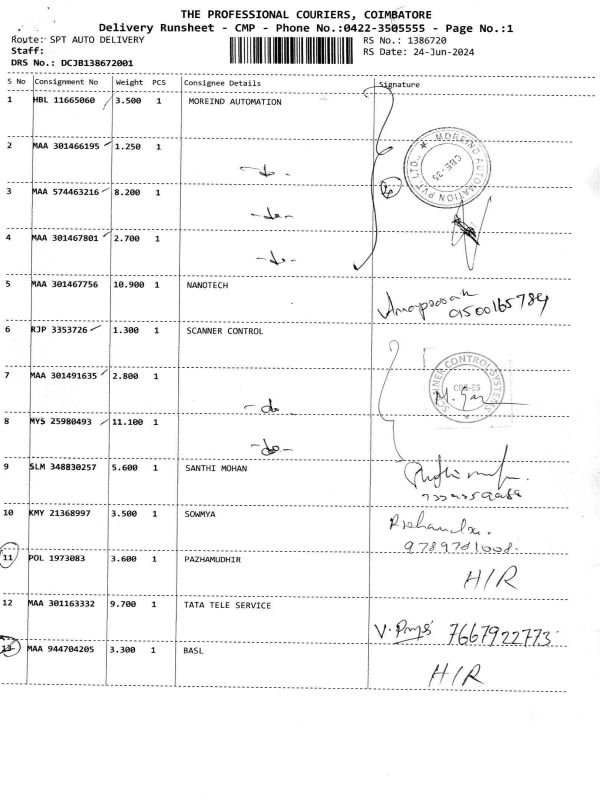 THE PROFESSIONAL COURIERS, COIMBATORE
Delivery Runsheet - CMP - Phone No.:0422-3505555 - Page No.:1
Route: SPT AUTO DELIVERY RS No.: 1386720
Staff: RS Date: 24-Jun-2024
DRS No.: DCJB138672001
S No Consignment No Weight PCS Consignee Details Signature
1 HBL 11665060 3.500 1 MOREIND AUTOMATION
MOREIND AUTOMATION PVT LTD., ★ CBE-35
2 MAA 301466195 1.250 1 -do-
3 MAA 574463216 8.200 1 -do- 4
4 MAA 301467801 2.700 1 -do-
5 MAA 301467756 10.900 1 NANOTECH
9500165784
6 RJP 3353726 1.300 1 SCANNER CONTROL
SCANNER CONTROL SYSTEMS ★ CBE-35
7 MAA 301491635 2.800 1 -do-
8 MYS 25980493 11.100 1 -do-
9 SLM 348830257 5.600 1 SANTHI MOHAN
10 KMY 21368997 3.500 1 SOWMYA
9789781008.
11 POL 1973083 3.600 1 PAZHAMUDHIR H/R
12 MAA 301163332 9.700 1 TATA TELE SERVICE
7667922773
13 MAA 944704205 3.300 1 BASL H/R